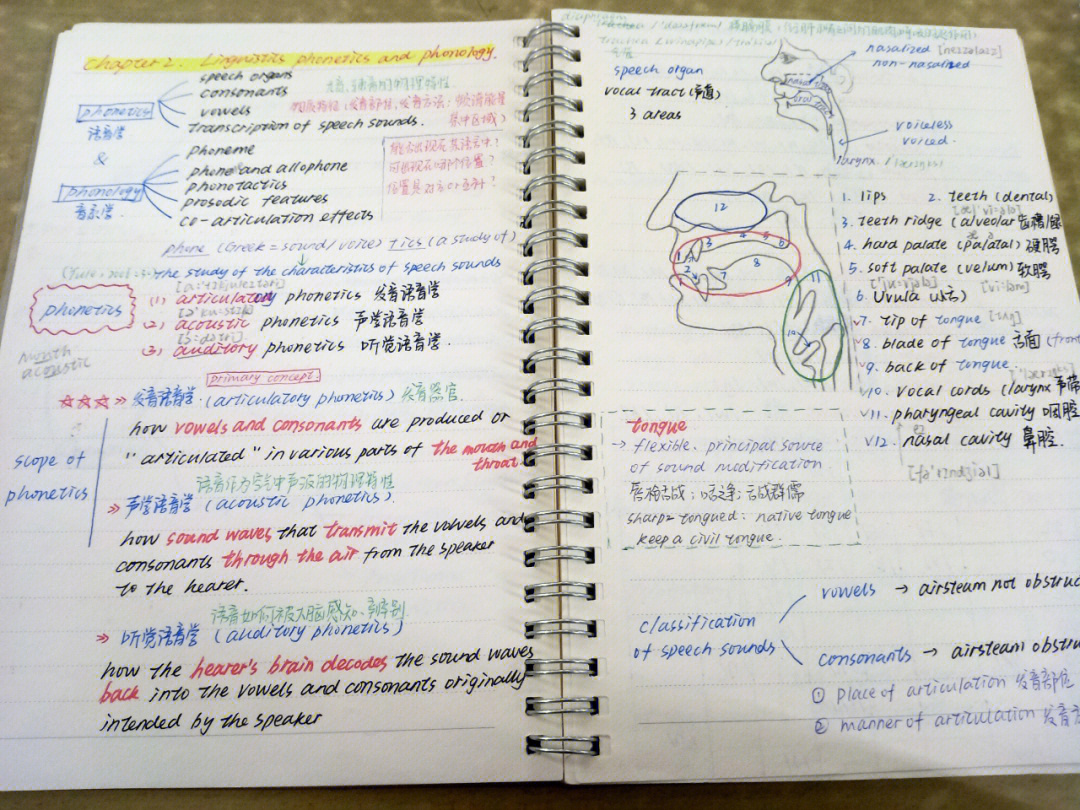 Chapter 2. Linguistic phonetics and phonology.
speech organs
consonants
vowels
transcription of speech sounds.
phonetics
语音学
&
phoneme
phone and allophone
phonotactics
prosodic features
co-articulation effects
phonology
音系学
phone (Greek = sound/voice) tics (a study of)
the study of the characteristics of speech sounds
phonetics
(1) articulatory phonetics 发音语音学
(2) acoustic phonetics 声学语音学
(3) auditory phonetics 听觉语音学.
acoustic
primary concept.
☆☆☆ » 发音语音学 (articulatory phonetics) 发音器官.
how vowels and consonants are produced or
"articulated" in various parts of the mouth and
throat.
scope of
phonetics
» 声学语音学 (acoustic phonetics).
how sound waves that transmit the volvels and
consonants through the air from the speaker
to the hearer.
语音如何被大脑感知、辨别
» 听觉语音学 (auditory phonetics)
how the hearer's brain decodes the sound waves
back into the vowels and consonants originally
intended by the speaker
diaphragm
speech organ
vocal tract (声道)
3 areas
nasalized
non-nasalized
voiceless
voiced.
larynx.
12
8
7
1. lips 2. teeth (dental)
3. teeth ridge (alveolar
4. hard palate (palatal) 硬腭
5. soft palate (velum) 软腭
6. Uvula
7. tip of tongue
8. blade of tongue 舌面 (front
9. back of tongue
10. vocal cords (larynx 声带
11. pharyngeal cavity 咽腔
12. nasal cavity 鼻腔.
tongue
→ flexible. principal source
of sound modification
sharp tongued: native tongue
keep a civil tongue.
classification
of speech sounds
vowels → airsteam not obstruc
consonants → airsteam obstru
① Place of articulation 发音部位
② manner of articulation 发音